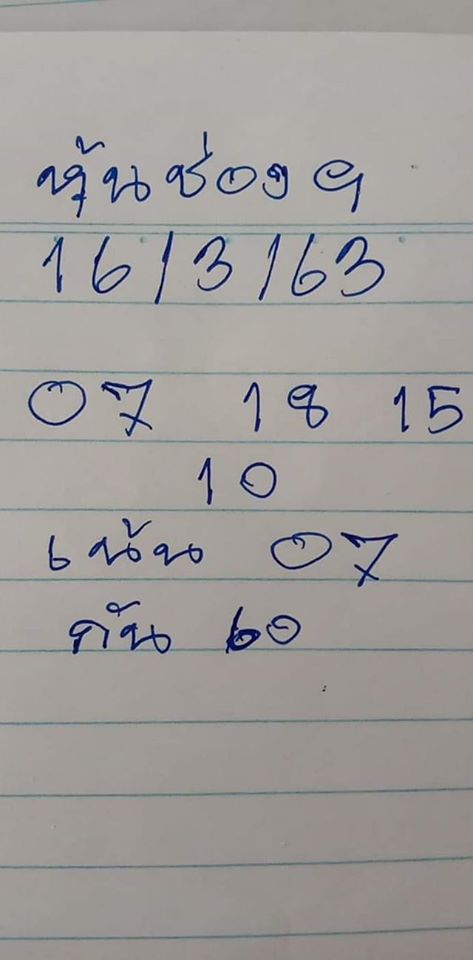 หุ้นช่อง ๙
16/3/63
07 18 15
10
เน้น 07
กัน 60